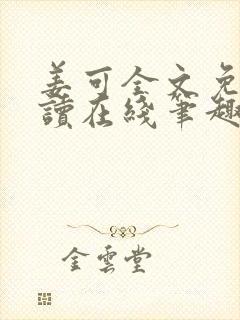 姜可全文免
讀在綫筆趣
金雲堂